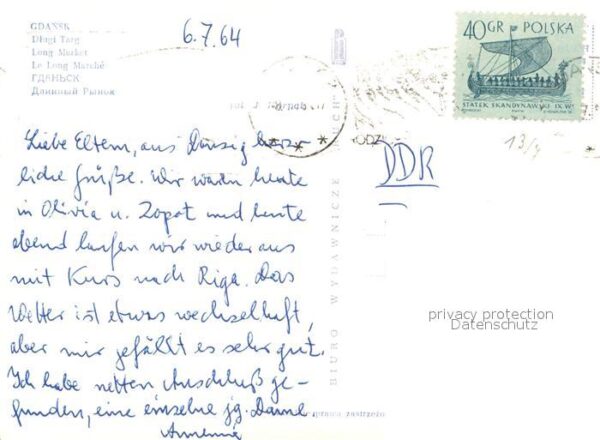 GDAŃSK
Długi Targ
Long Market
Le Long Marché
ГДАНЬСК
Длинный Рынок
6.7.64
40 GR POLSKA
STATEK SKANDYNAWSKI IX W.
13/4
DDR
Liebe Eltern, aus Danzig herz-
liche Grüße. Wir waren heute
in Olivia u. Zopot und heute
abend laufen wir wieder aus
mit Kurs nach Riga. Das
Wetter ist etwas wechselhaft,
aber mir gefällt es sehr gut.
Ich habe netten Anschluß ge-
funden, eine einzelne jg. Dame
BIURO WYDAWNICZE RUCH
privacy protection
Datenschutz